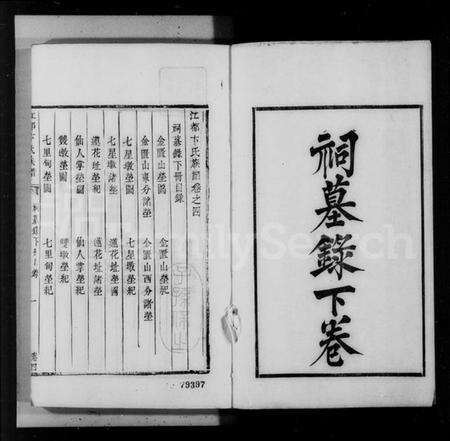 祠墓錄下卷
江都卞氏族譜卷之四
祠墓錄下冊目錄
金匱山塋圖
金匱山塋祀
金匱山東分諸塋
金匱山西分諸塋
七星墩塋圖
七星墩塋祀
七星墩諸塋
蓮花址塋圖
蓮花址塋祀
蓮花址諸塋
仙人掌塋圖
仙人掌塋祀
雙墩塋圖
雙墩塋祀
七里甸塋圖
七里甸塋祀
79397
FamilySearch